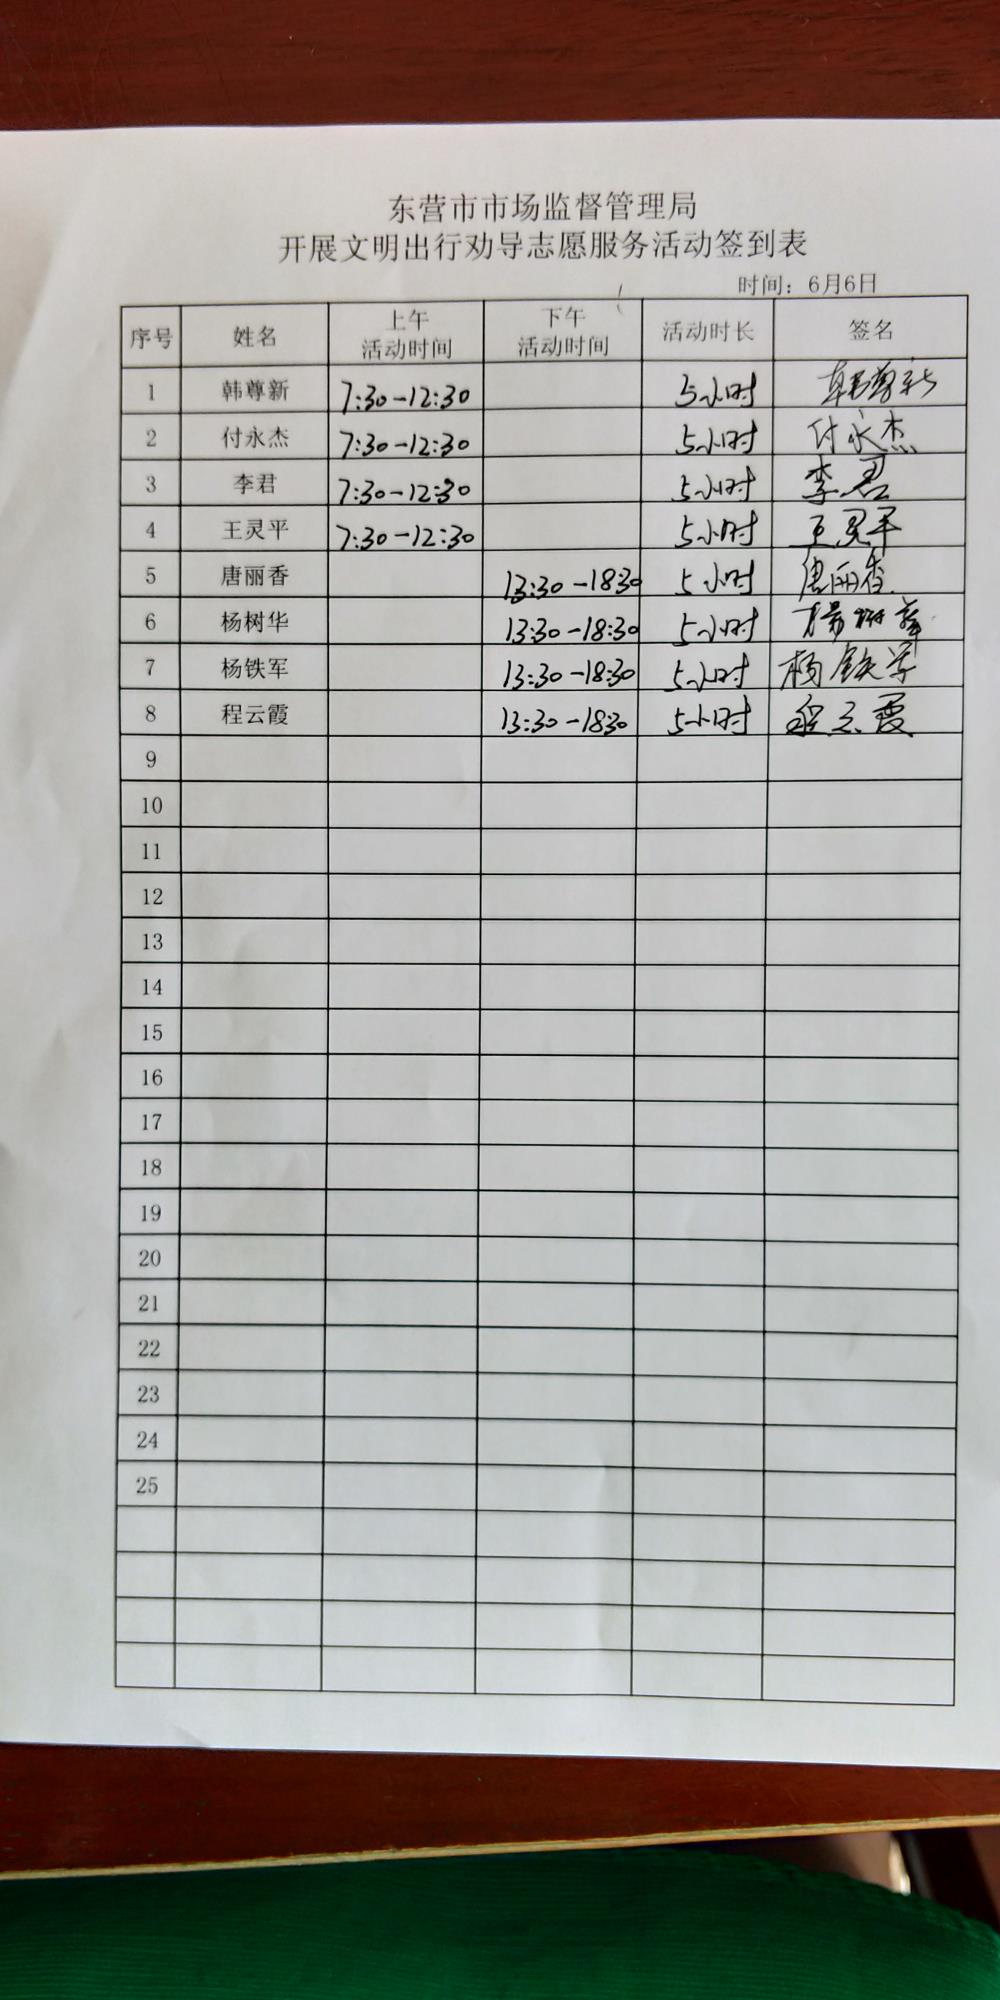 东营市市场监督管理局
开展文明出行劝导志愿服务活动签到表
时间：6月6日
序号 姓名 上午活动时间 下午活动时间 活动时长 签名
1 韩尊新 7:30-12:30 5小时 韩尊新
2 付永杰 7:30-12:30 5小时 付永杰
3 李君 7:30-12:30 5小时 李君
4 王灵平 7:30-12:30 5小时 王灵平
5 唐丽香 13:30-18:30 5小时 唐丽香
6 杨树华 13:30-18:30 5小时 杨树华
7 杨铁军 13:30-18:30 5小时 杨铁军
8 程云霞 13:30-1830 5小时 程云霞
9
10
11
12
13
14
15
16
17
18
19
20
21
22
23
24
25